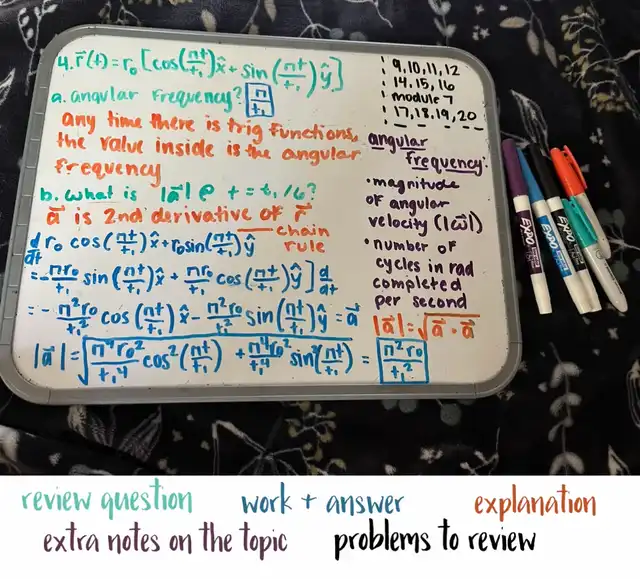 4. r⃗(t) = r₀ [cos(πt/t₁)x̂ + sin(πt/t₁)ŷ]
a. angular frequency? π/t₁
any time there is trig functions,
the value inside is the angular
frequency
b. what is |a⃗| @ t = t₁/6?
a⃗ is 2nd derivative of r⃗
chain
rule
d/dt r₀ cos(πt/t₁)x̂ + r₀ sin(πt/t₁)ŷ
= -πr₀/t₁ sin(πt/t₁)x̂ + πr₀/t₁ cos(πt/t₁)ŷ] d/dt
= -π²r₀/t₁² cos(πt/t₁)x̂ - π²r₀/t₁² sin(πt/t₁)ŷ = a⃗
|a⃗| = √(π⁴r₀²/t₁⁴ cos²(πt/t₁) + π⁴r₀²/t₁⁴ sin²(πt/t₁)) = π²r₀/t₁²
9, 10, 11, 12
14, 15, 16
module 7
17, 18, 19, 20
angular
frequency:
• magnitude
of angular
velocity (|ω⃗|)
• number of
cycles in rad
completed
per second
|a⃗| = √(a⃗ · a⃗)
EXPO
EXPO
EXPO
review question work + answer explanation
extra notes on the topic problems to review